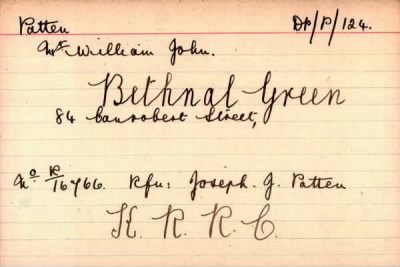 Patten DP/P/124.
Mr William John.
Bethnal Green
84 Canrobert Street,
No R/16766. Rfn: Joseph. J. Patten
K. R. R. C.